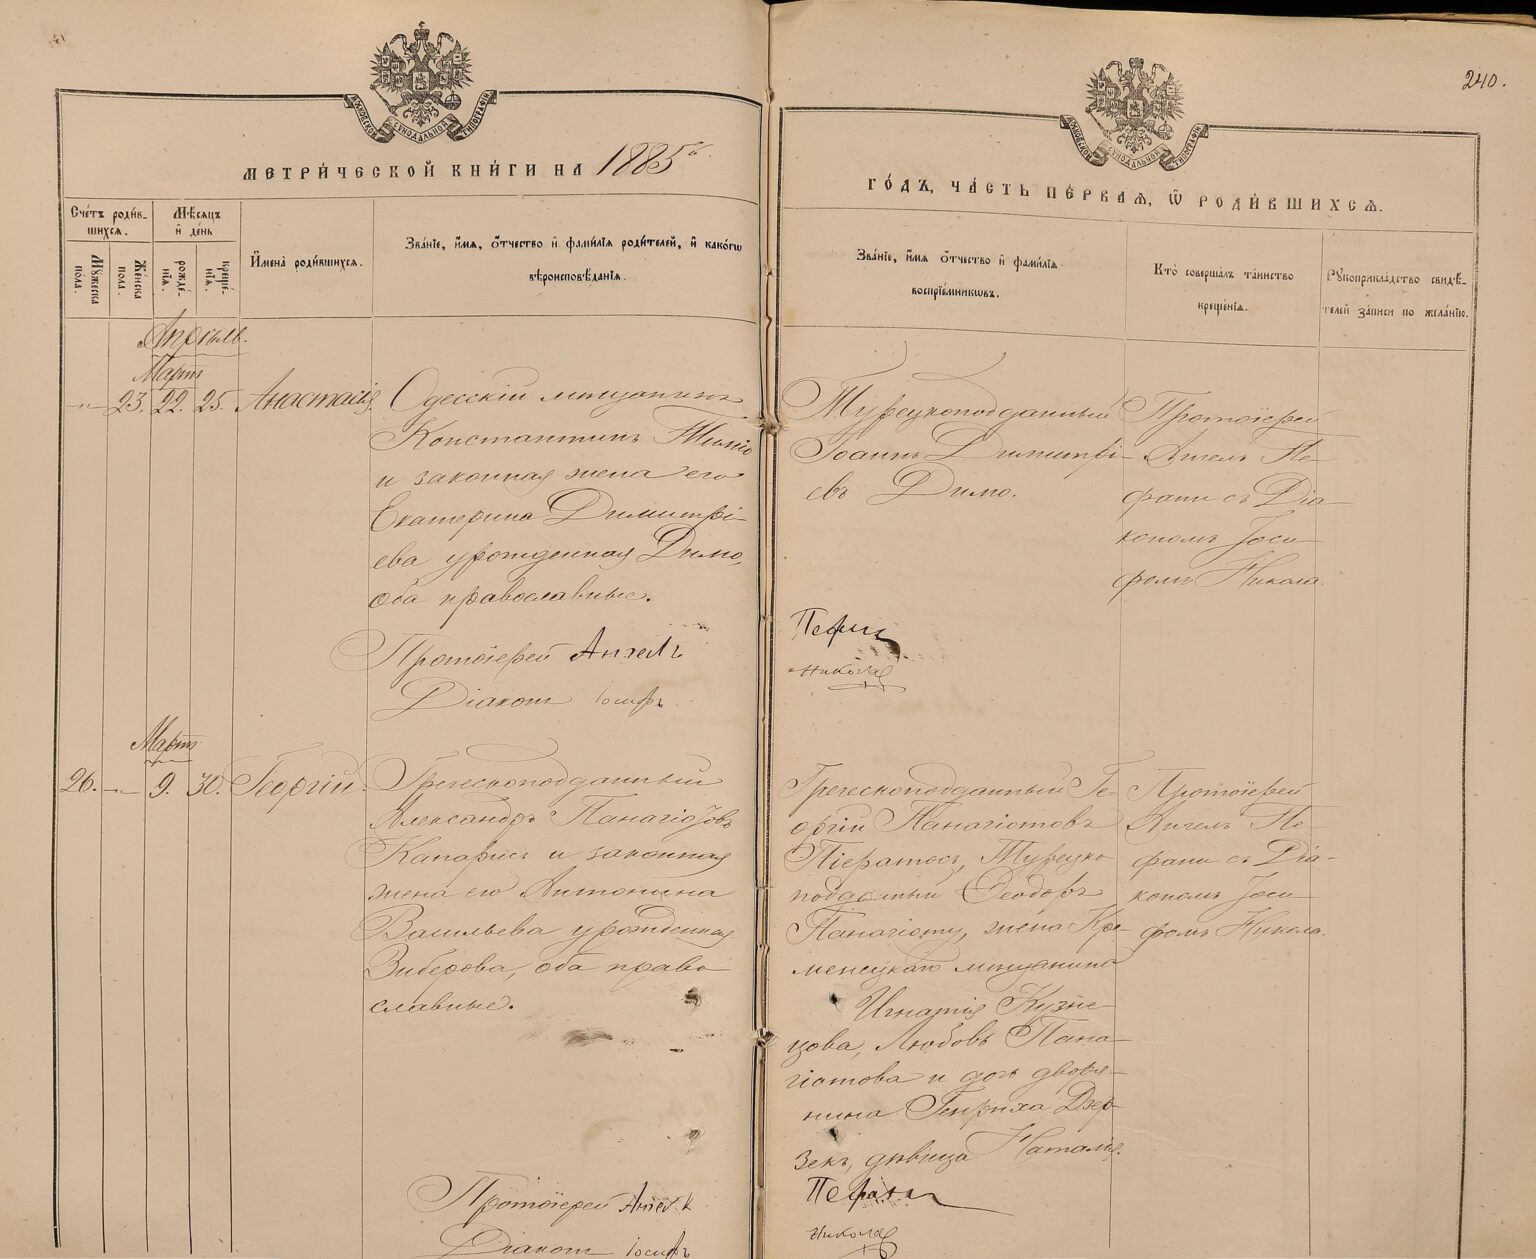 240.
МОСКОВСКОЙ СУНОДАЛЬНОЙ ТИПОГРАФІИ
МОСКОВСКОЙ СУНОДАЛЬНОЙ ТИПОГРАФІИ
МЕТРИ́ЧЕСКОЙ КНИ́ГИ НА 1885й.
ГО́ДЪ, ЧА́СТЬ ПЕ́РВАѦ, Ѿ РОДИ́ВШИХСѦ.
Сче́тъ роди́в-
шихсѧ.
Мꙋжеска
по́ла.
Же́нска
пола.
Мѣ́сѧцъ
и҆ де́нь
рожде́-
нїѧ.
креще́-
нїѧ.
И҆мена̀ роди́вшихсѧ.
Зва́нїе, и҆́мѧ, ѻ҆́тчество и҆ фами́лїѧ роди́телей, и҆ како́гѡ
вѣроисповѣ́данїѧ.
Зва́нїе, и҆́мѧ ѻ҆́тчество и҆ фами́лїѧ
воспрїе́мникѡвъ.
Кто̀ соверша́лъ та́инство
креще́нїѧ.
Рꙋкоприкла́дство свидѣ́-
телей за́писи по жела́нїю.
Апрѣль.
Мартъ
-"- 23. 22. 25. Анастасія.
Одесскій мѣщанинъ
Константинъ
и законная жена его
Екатерина Димитрі-
ева урожденная Димо,
оба православные.
Протоіерей Ангелъ
Діаконъ Іосифъ
Турецкоподданный
Іоаннъ Димитрі-
евъ Димо.
Протоіерей
Ангелъ Пе-
фани съ Діа-
кономъ Іоси-
фомъ Никола.
Пефани
Николая
Мартъ
26. -"- 9. 30. Георгій.
Греческоподданный
Александръ Панагіотовъ
Капарисъ и законная
жена его Антонина
Васильева урожденная
Зиберова, оба право-
славные.
Протоіерей Ангелъ
Діаконъ Іосифъ
Греческоподданный Ге-
оргій Панагіотовъ
Піератосъ, Турецко
подданный Ѳеодоръ
Панагіоту, жена Кре-
менецкаго мѣщанина
Игнатія Кузне-
цова, Любовь Пана-
гіотова и дочь дворя-
нина Генриха Дзер-
зекъ, дѣвица Наталія.
Протоіерей
Ангелъ Пе-
фани съ Діа-
кономъ Іоси-
фомъ Никола.
Пефани
Николая